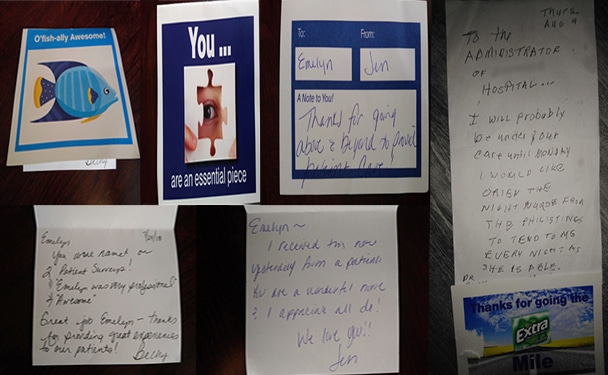 O'fish-ally Awesome!
Becky
You ...
are an essential piece
To:
From:
Emelyn
Jen
A Note to You!
Thanks for going
above & Beyond to provide
patient care!
Thurs.
Aug 4
To the
ADMINISTRATOR
OF
HOSPITAL...
I will probably
be under your
care until MONDAY
I WOULD LIKE
THE
NIGHT NURSE FROM
THE
TO TEND TO ME
EVERY NIGHT AS
SHE IS ABLE.
Thanks for going the
Extra
Mile
Emelyn
You were named on
2 Patient Surveys!
"Emelyn was very professional"
"Awesome"
Great job Emelyn - thanks
for providing great experiences
to our patients!
Becky
Emelyn~
I received this note
yesterday from a patient.
You are a wonderful nurse
& I appreciate all do!
We love you!!
Jen